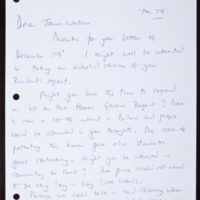 Jan 29
Dear James Watson
Thanks for your letter of
December 29th. I might well be interested
in taking an adapted version of your
President's report.
Might you have the time to expand
a bit on the Human Genome Project? There
is now a lot of interest in Britain and people
would be interested in your thoughts. The idea of
patenting the human gene also stimulates
great controversy - might you be interested in
commenting on that? The piece would not need
to be very long - say 1000 words.
Perhaps we could talk in mid-February when